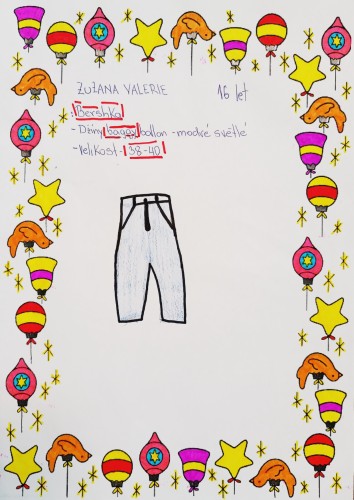 ZUZANA VALERIE 16 let
- Bershka
- Džíny baggy ballon - modré světlé
- Velikost: 38-40